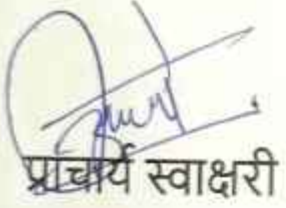 प्राचार्य स्वाक्षरी